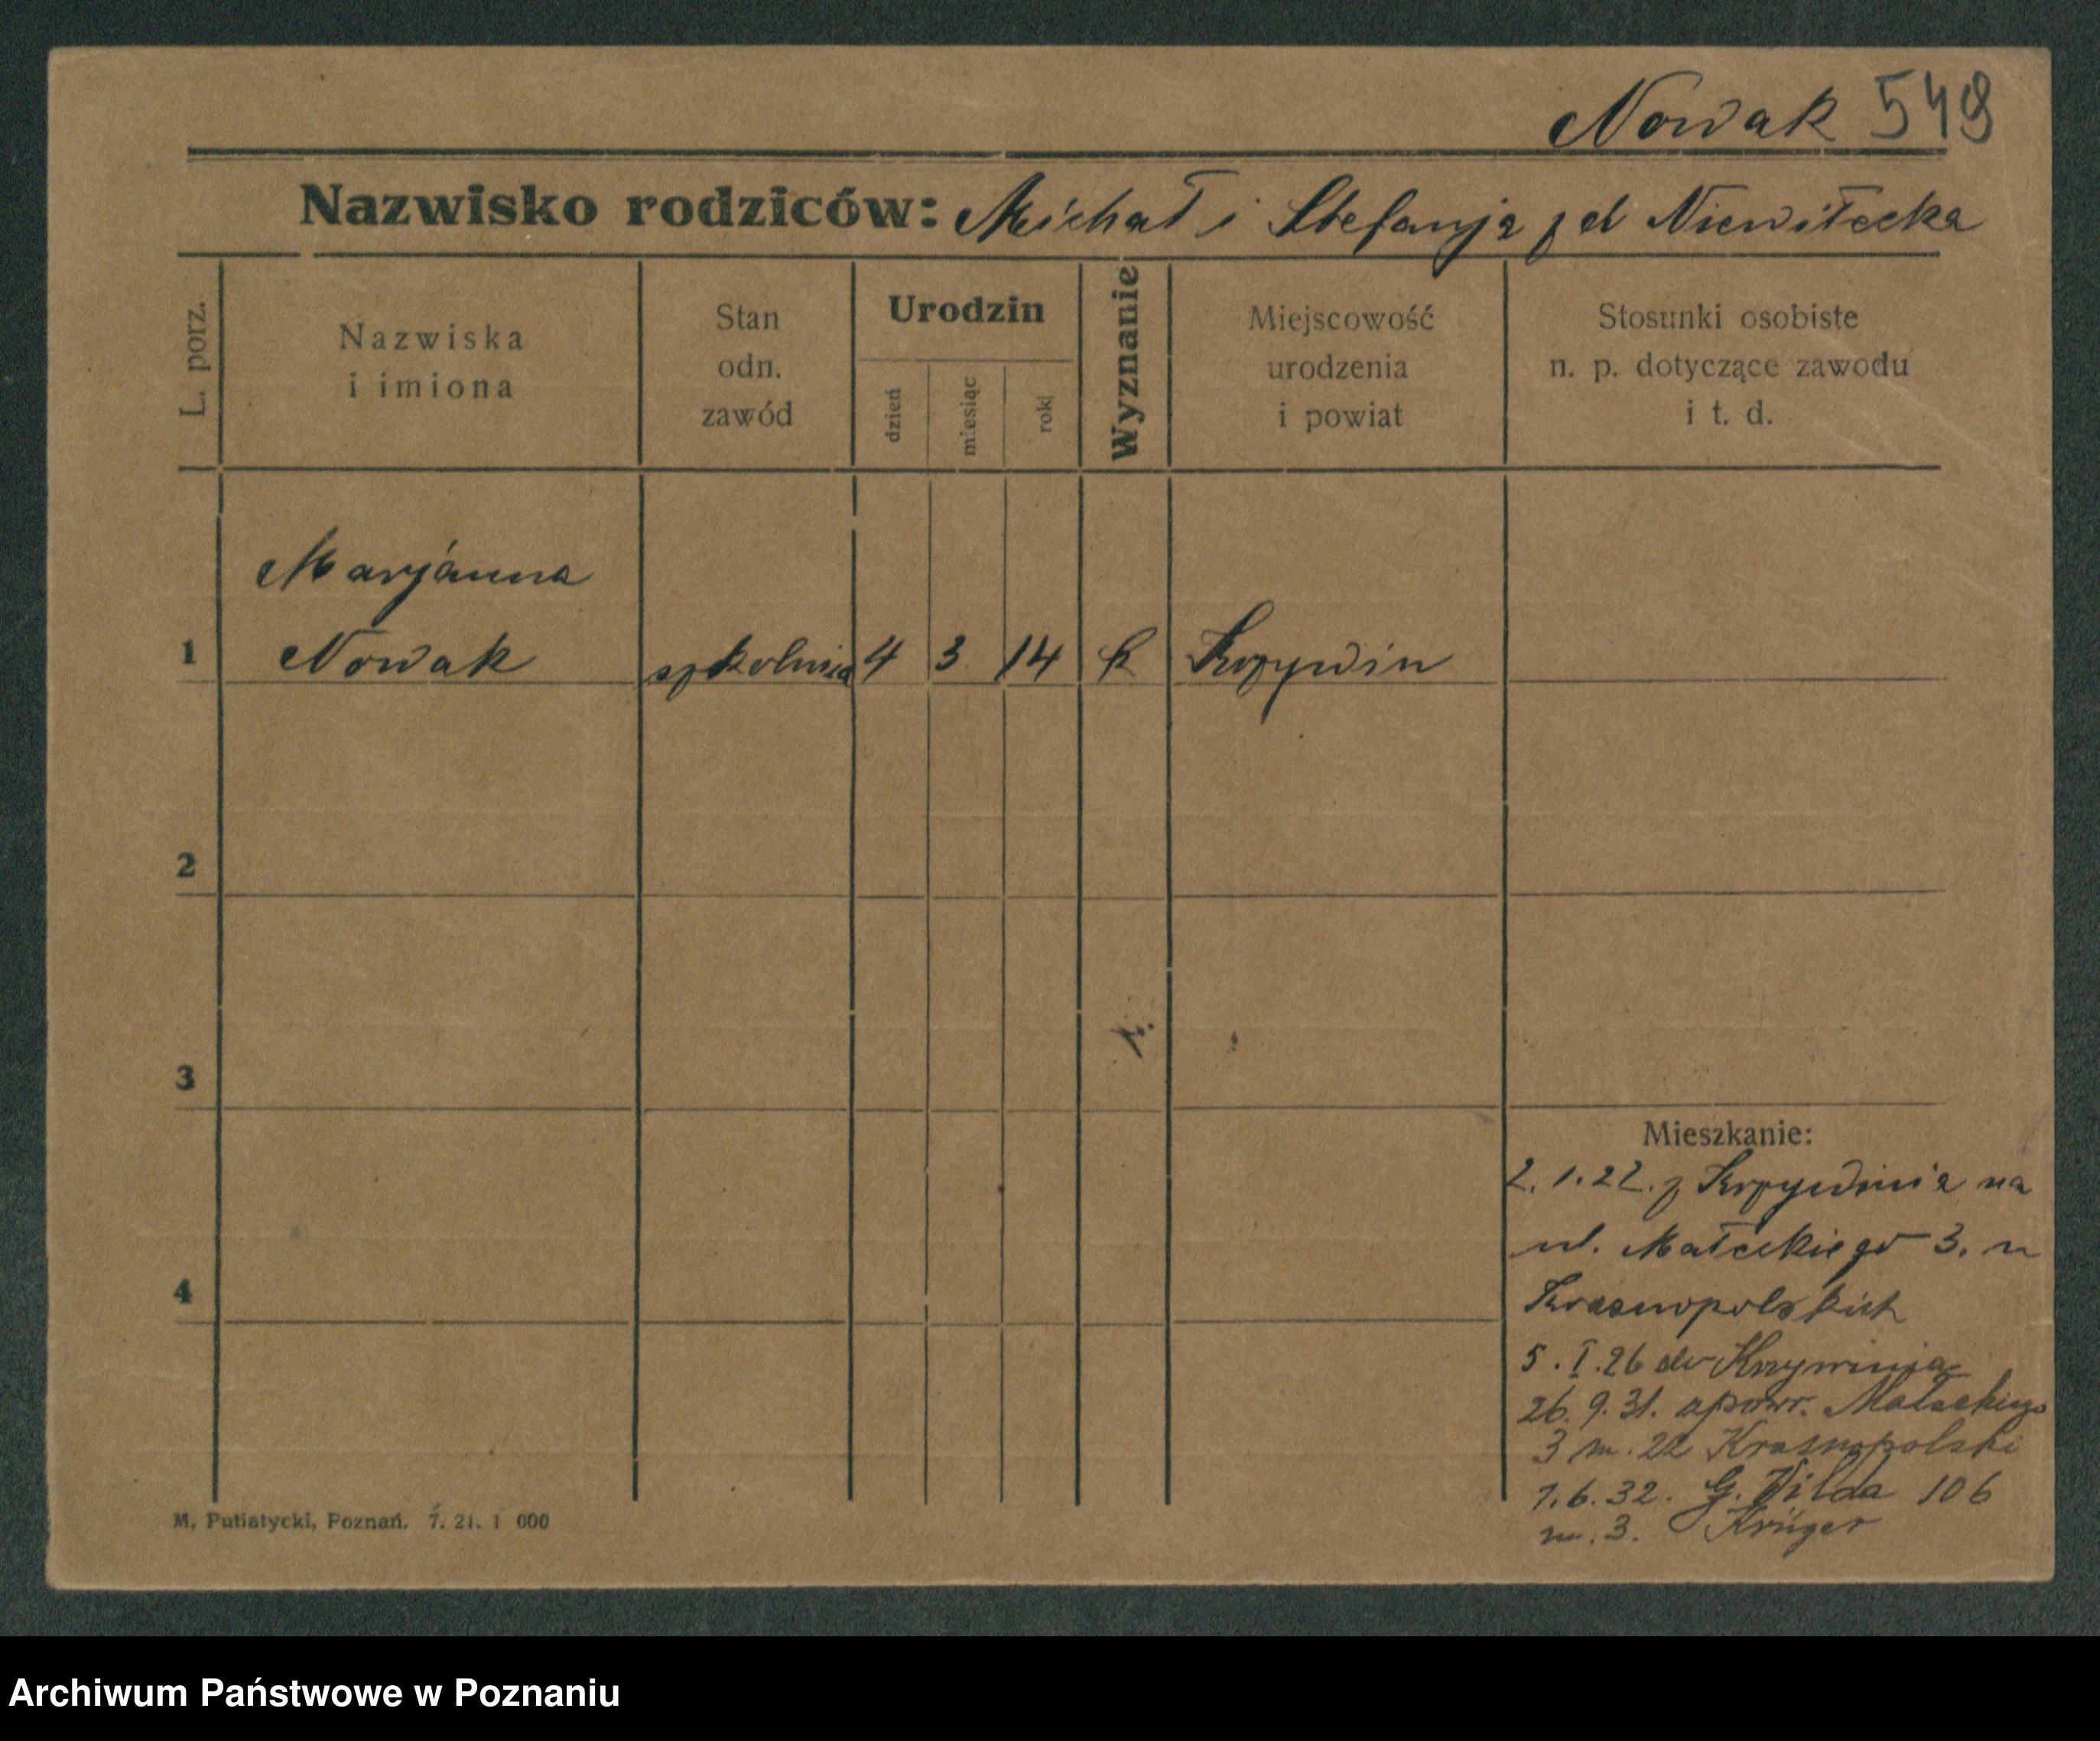 Nowak 549
Nazwisko rodziców: Michał i Stefanja z d Niewitecka
L. porz.
Nazwiska
i imiona
Stan
odn.
zawód
Urodzin
dzień
miesiąc
rok
Wyznanie
Miejscowość
urodzenia
i powiat
Stosunki osobiste
n. p. dotyczące zawodu
i t. d.
Marjanna
1 Nowak szkolnia 4 3 14 k Krzywin
2
3
4
Mieszkanie:
2.1.22. z Krzywinia na
ul. Małeckiego 3. u
Krasnopolskich
5.I.26 do Krzywinia
26.9.31. zpowr. Małeckiego
3 m. 22 Krasnopolski
7.6.32. G. Wilda 106
m. 3. Krüger
M. Putiatycki, Poznań. 7. 21. 1 000
Archiwum Państwowe w Poznaniu